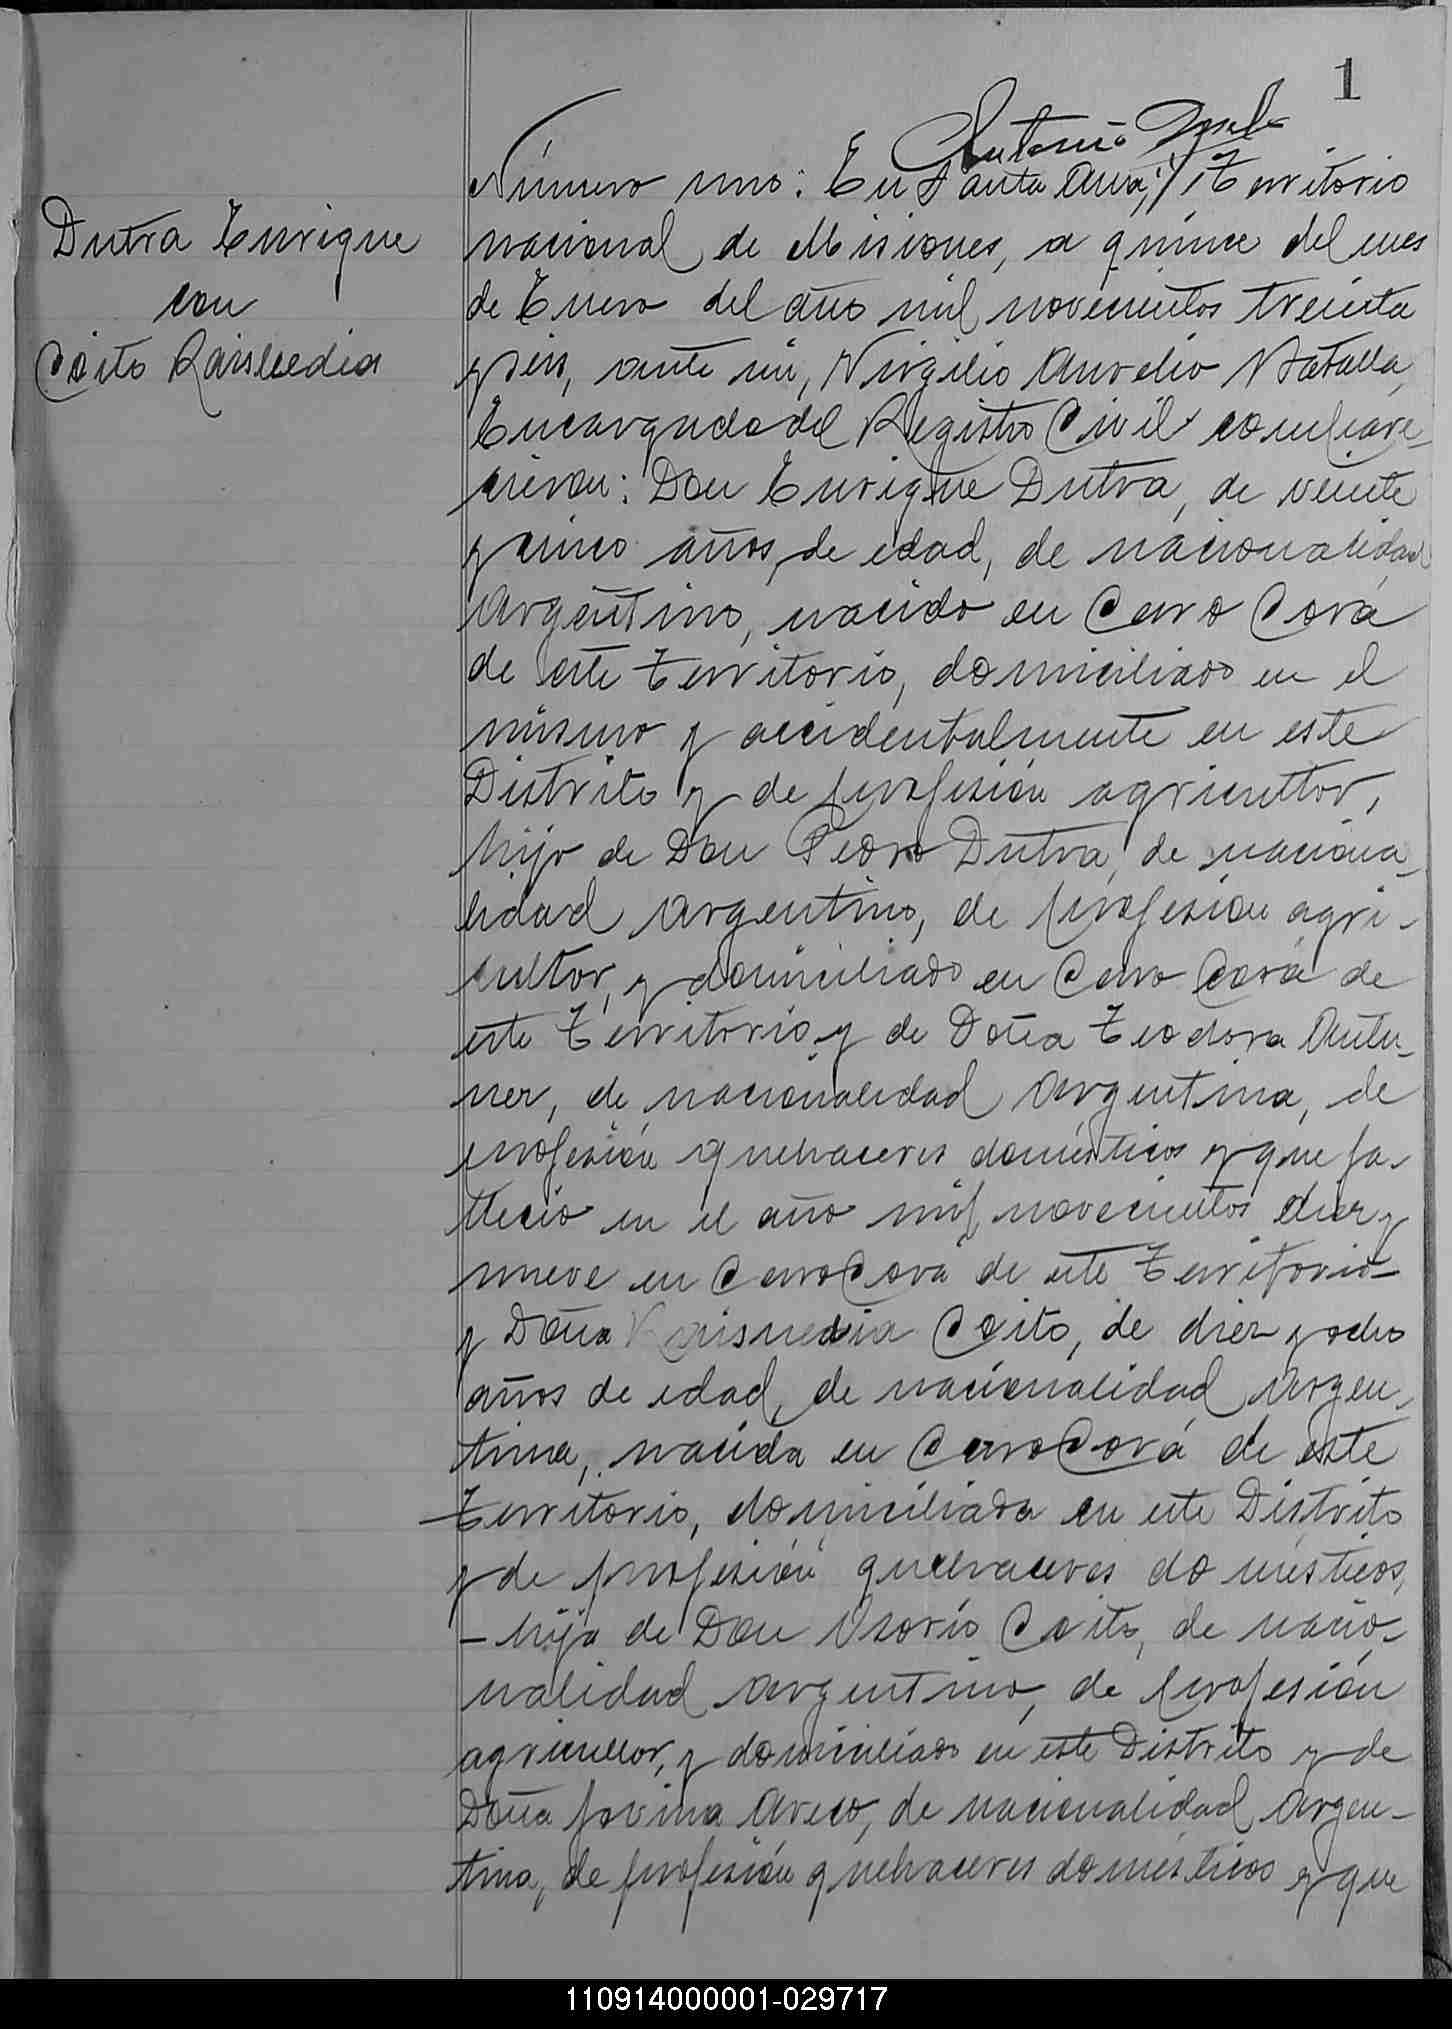 1
Antonio
Dutra Enrique
con
Coito Raismedia
Número uno: En Santa Ana, Territorio
nacional de Misiones, a quince del mes
de Enero del año mil novecientos treinta
y seis, ante mi, Virgilio Aurelio Natalla,
Encargado del Registro Civil compare-
cieron: Don Enrique Dutra, de veinte
y cinco años, de edad, de nacionalidad
Argentino, nacido en Cerro Corá
de este Territorio, domiciliado en el
mismo y accidentalmente en este
Distrito y de profesión agricultor,
hijo de Don Pedro Dutra, de naciona-
lidad argentino, de profesión agri-
cultor, y domiciliado en Cerro Corá de
este Territorio y de Doña Teodora Antu-
nez, de nacionalidad Argentina, de
profesión quehaceres domésticos y que fa-
lleció en el año mil novecientos diez y
nueve en Cerro Corá de este Territorio
y Doña Raismedia Coito, de diez y ocho
años de edad, de nacionalidad Argen-
tina, nacida en Cerro Corá de este
Territorio, domiciliada en este Distrito
y de profesión quehaceres domésticos,
- hija de Don Osorio Coito, de nacio-
nalidad argentino, de profesión
agricultor, y domiciliado en este Distrito y de
Doña Jovina de nacionalidad Argen-
tina, de profesión quehaceres domésticos y que
110914000001-029717